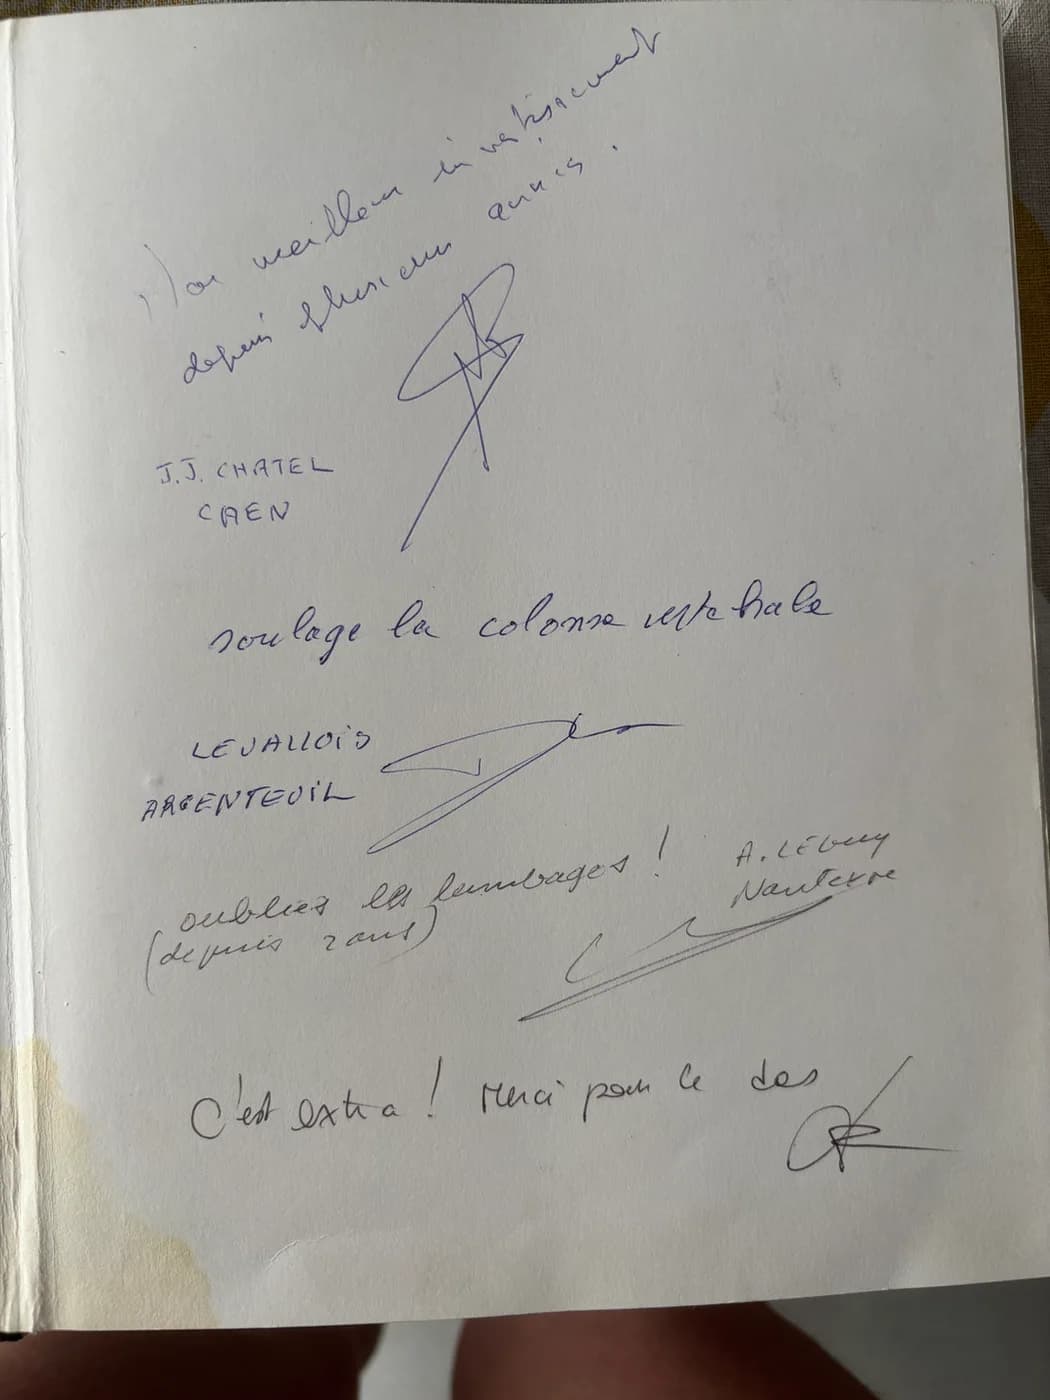 Mon meilleur investissement
depuis plusieurs années.
J.J. CHATEL
CAEN
soulage la colonne vertébrale
LEVALLOIS
ARGENTEUIL
oubliées les lumbagos !
(depuis 2 ans)
A. LEGUY
Nanterre
C'est extra ! Merci pour le dos